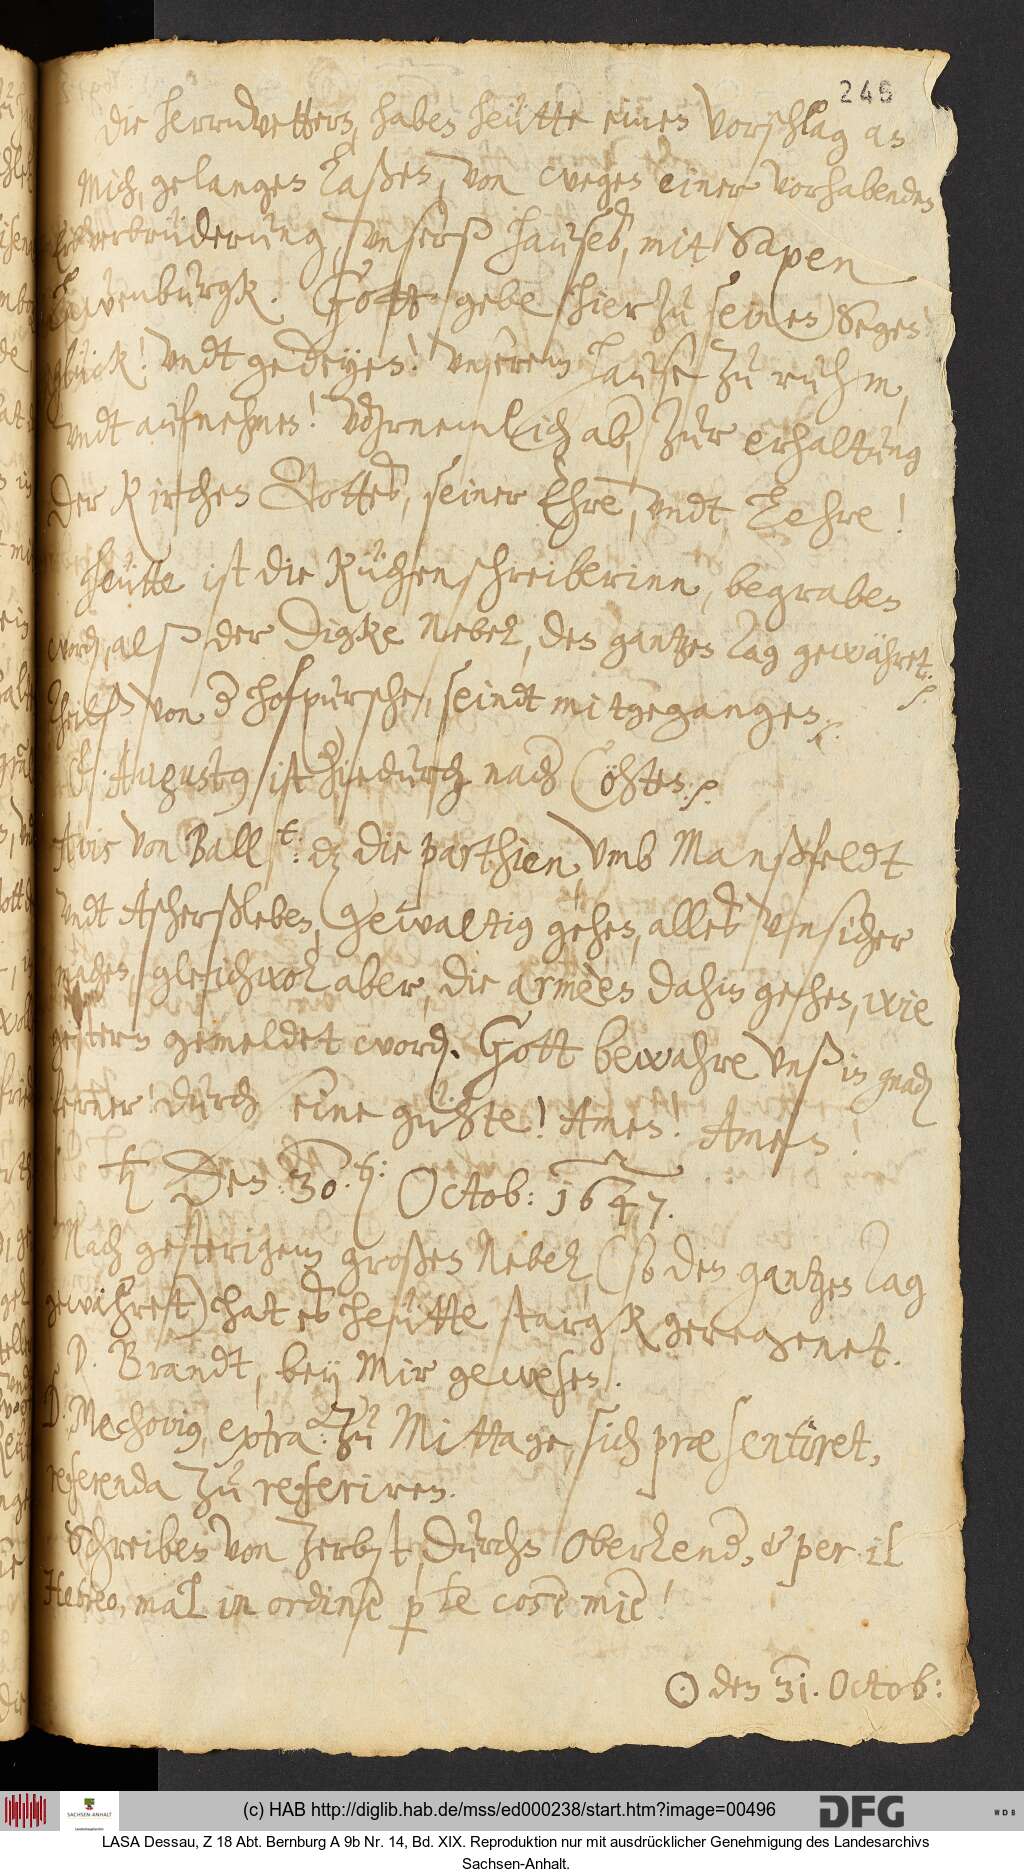 246
die herrnvettern, haben heütte einen vorschlag an
Mich, gelangen laßen, von wegen einer vorhabenden
Erbverbrüderung, vnserß hauses, mit Saxen
Lawenburgk. Gott gebe hierzu seinen Segen
glück! vndt gedeyen! vnserem hause zu ruhm,
vndt aufnehmen! Vohrnemlich ab, zur erhaltung
der Kirchen Gottes, seiner Ehre, vndt Lehre!
Heütte ist die Küchenschreiberinn, begraben
word, alß der digke Nebel, den gantzen Tag gewähret.
Theilß von d hofpursche, seindt mitgegangen.
Augustus ist hindurch nach Cöhten.
Avis von Ball t: dz die parthien vmb Manßfeldt
vndt Ascherßleben, gewaltig gehen, alles vnsicher
machen, gleichwol aber, die armèen dahin gehen, wie
gestern gemeldet word. Gott bewahre vnß in gnad
ferner! durch seine gühte! Amen! Amen!
♄ den: 30. t: Octob: 1647.
Nach gesterigem großen Nebel (so den gantzen Tag
gewähret) hat es heütte stargk geregenet.
D. Brandt, bey Mir gewesen.
D. Mechovius, extra: zu Mittage, sich præsentiret,
referenda zu referiren.
Schreiben von Zerbst, durchs Oberlend, & per il
Hebreo, mal in ordine p le cose mie!
☉ den 31. Octob:
(c) HAB http://diglib.hab.de/mss/ed000238/start.htm?image=00496
SACHSEN-ANHALT
DFG
WDB
LASA Dessau, Z 18 Abt. Bernburg A 9b Nr. 14, Bd. XIX. Reproduktion nur mit ausdrücklicher Genehmigung des Landesarchivs
Sachsen-Anhalt.